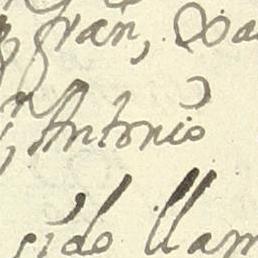 fran, Xa
Antonio
sido llam